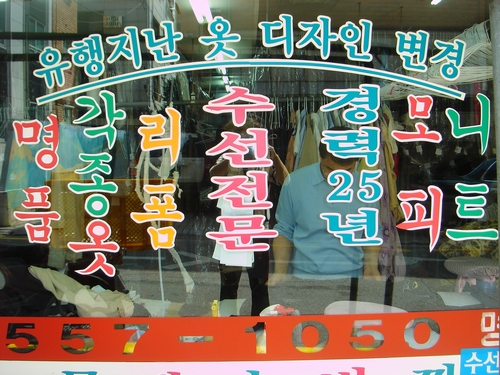 유행지난 옷 디자인 변경
명품
각종옷
리폼
수선전문
경력25년
모피
니트
557-1050
명
수선